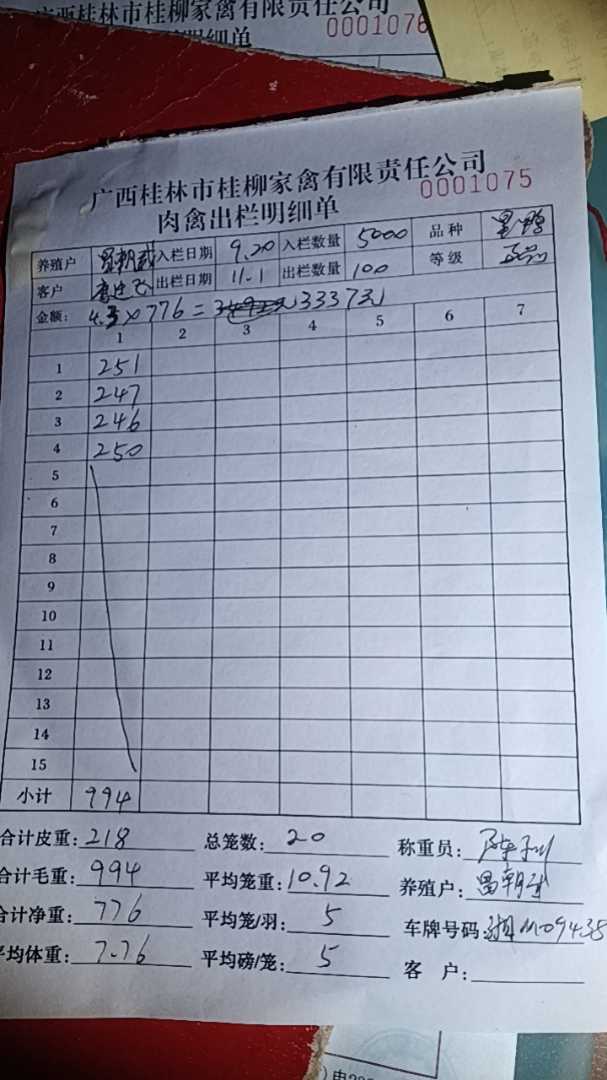 广西桂林市桂柳家禽有限责任公司
0001076
明细单
广西桂林市桂柳家禽有限责任公司
肉禽出栏明细单
0001075
养殖户 入栏日期 9.20 入栏数量 5000 品种
客户 出栏日期 11.1 出栏数量 100 等级 正品
金额: 4.3×776= 3337元
1 2 3 4 5 6 7
1 251
2 247
3 246
4 250
5
6
7
8
9
10
11
12
13
14
15
小计 994
合计皮重: 218 总笼数: 20 称重员:
合计毛重: 994 平均笼重: 10.92 养殖户:
合计净重: 776 平均笼/羽: 5 车牌号码:
平均体重: 7.76 平均磅/笼: 5 客 户: